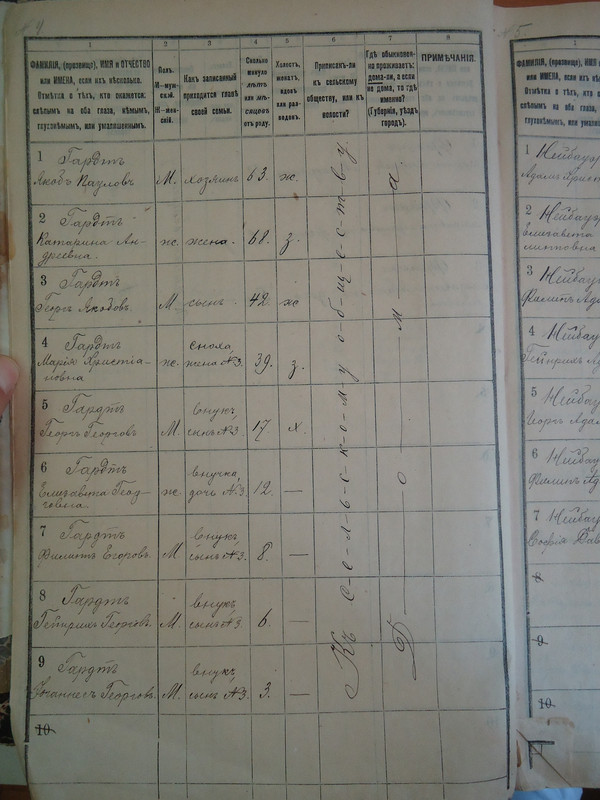 4
1 2 3 4 5 6 7 8
ФАМИЛІЯ, (прозвище), ИМЯ и ОТЧЕСТВО
или ИМЕНА, если ихъ нѣсколько.
Отмѣтка о тѣхъ, кто окажется:
слѣпымъ на оба глаза, нѣмымъ,
глухонѣмымъ, или умалишеннымъ.
Полъ.
М—муж-
ской.
Ж—жен-
скій.
Какъ записанный
приходится главѣ
своей семьи.
Сколько
минуло
лѣтъ
или мѣ-
сяцевъ
отъ роду.
Холостъ,
женатъ,
вдовъ
или раз-
веденъ.
Приписанъ-ли
къ сельскому
обществу, или къ
волости?
Гдѣ обыкновен-
но проживаетъ:
дома-ли, а если
не дома, то гдѣ
именно?
(Губернія, уѣздъ
городъ).
ПРИМѢЧАНІЯ.
1 Гардтъ
Якобъ Пауловъ М. хозяинъ 63. ж.
2 Гардтъ
Катарина Ан-
дреевна. ж. жена. 68. з.
3 Гардтъ
Георгъ Якобовъ. М. сынъ. 42. ж
4 Гардтъ
Марія Христіа-
новна ж. сноха,
жена №3. 39. з.
5 Гардтъ
Георгъ Георговъ М. внукъ,
сынъ №3 17. х.
6 Гардтъ
Елизавета Геор-
говна. ж. внучка,
дочь №3. 12. —
7 Гардтъ
Филиппъ Егоровъ. М внукъ,
сынъ №3. 8. —
8 Гардтъ
Гейнрихъ Георговъ. М. внукъ,
сынъ №3 6. —
9 Гардтъ
Іоганнесъ Георговъ. М. внукъ,
сынъ №3. 3. —
10
Къ с-е-л-ь-с-к-о-м-у о-б-щ-е-с-т-в-у.
Д—о—м—а.
5
1
ФАМИЛІЯ, (прозвище),
или ИМЕНА, если
Отмѣтка о тѣхъ,
слѣпымъ на оба
глухонѣмымъ, или
1 Нейбауэ
Адамъ Христ
2 Нейбау
Елизавета
3 Нейбау
Филипъ Ад
4 Нейбау
Гейнрихъ Ад
5 Нейбау
Георгъ Адам
6 Нейбау
Филипъ Ад
7 Нейбау
Софія
8
9
10